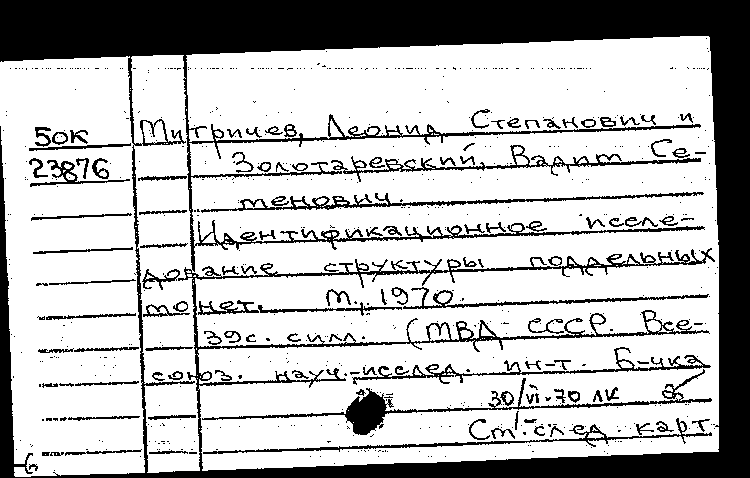 50К Митричев, Леонид Степанович и
23876 Золотаревский, Вадим Се-
менович.
Идентификационное иссле-
дование структуры поддельных
монет. М., 1970.
39с. силл. (МВД СССР. Все-
союз. науч.-исслед. ин-т. Б-чка
30/VI-70 ЛК
См. след. карт.
6